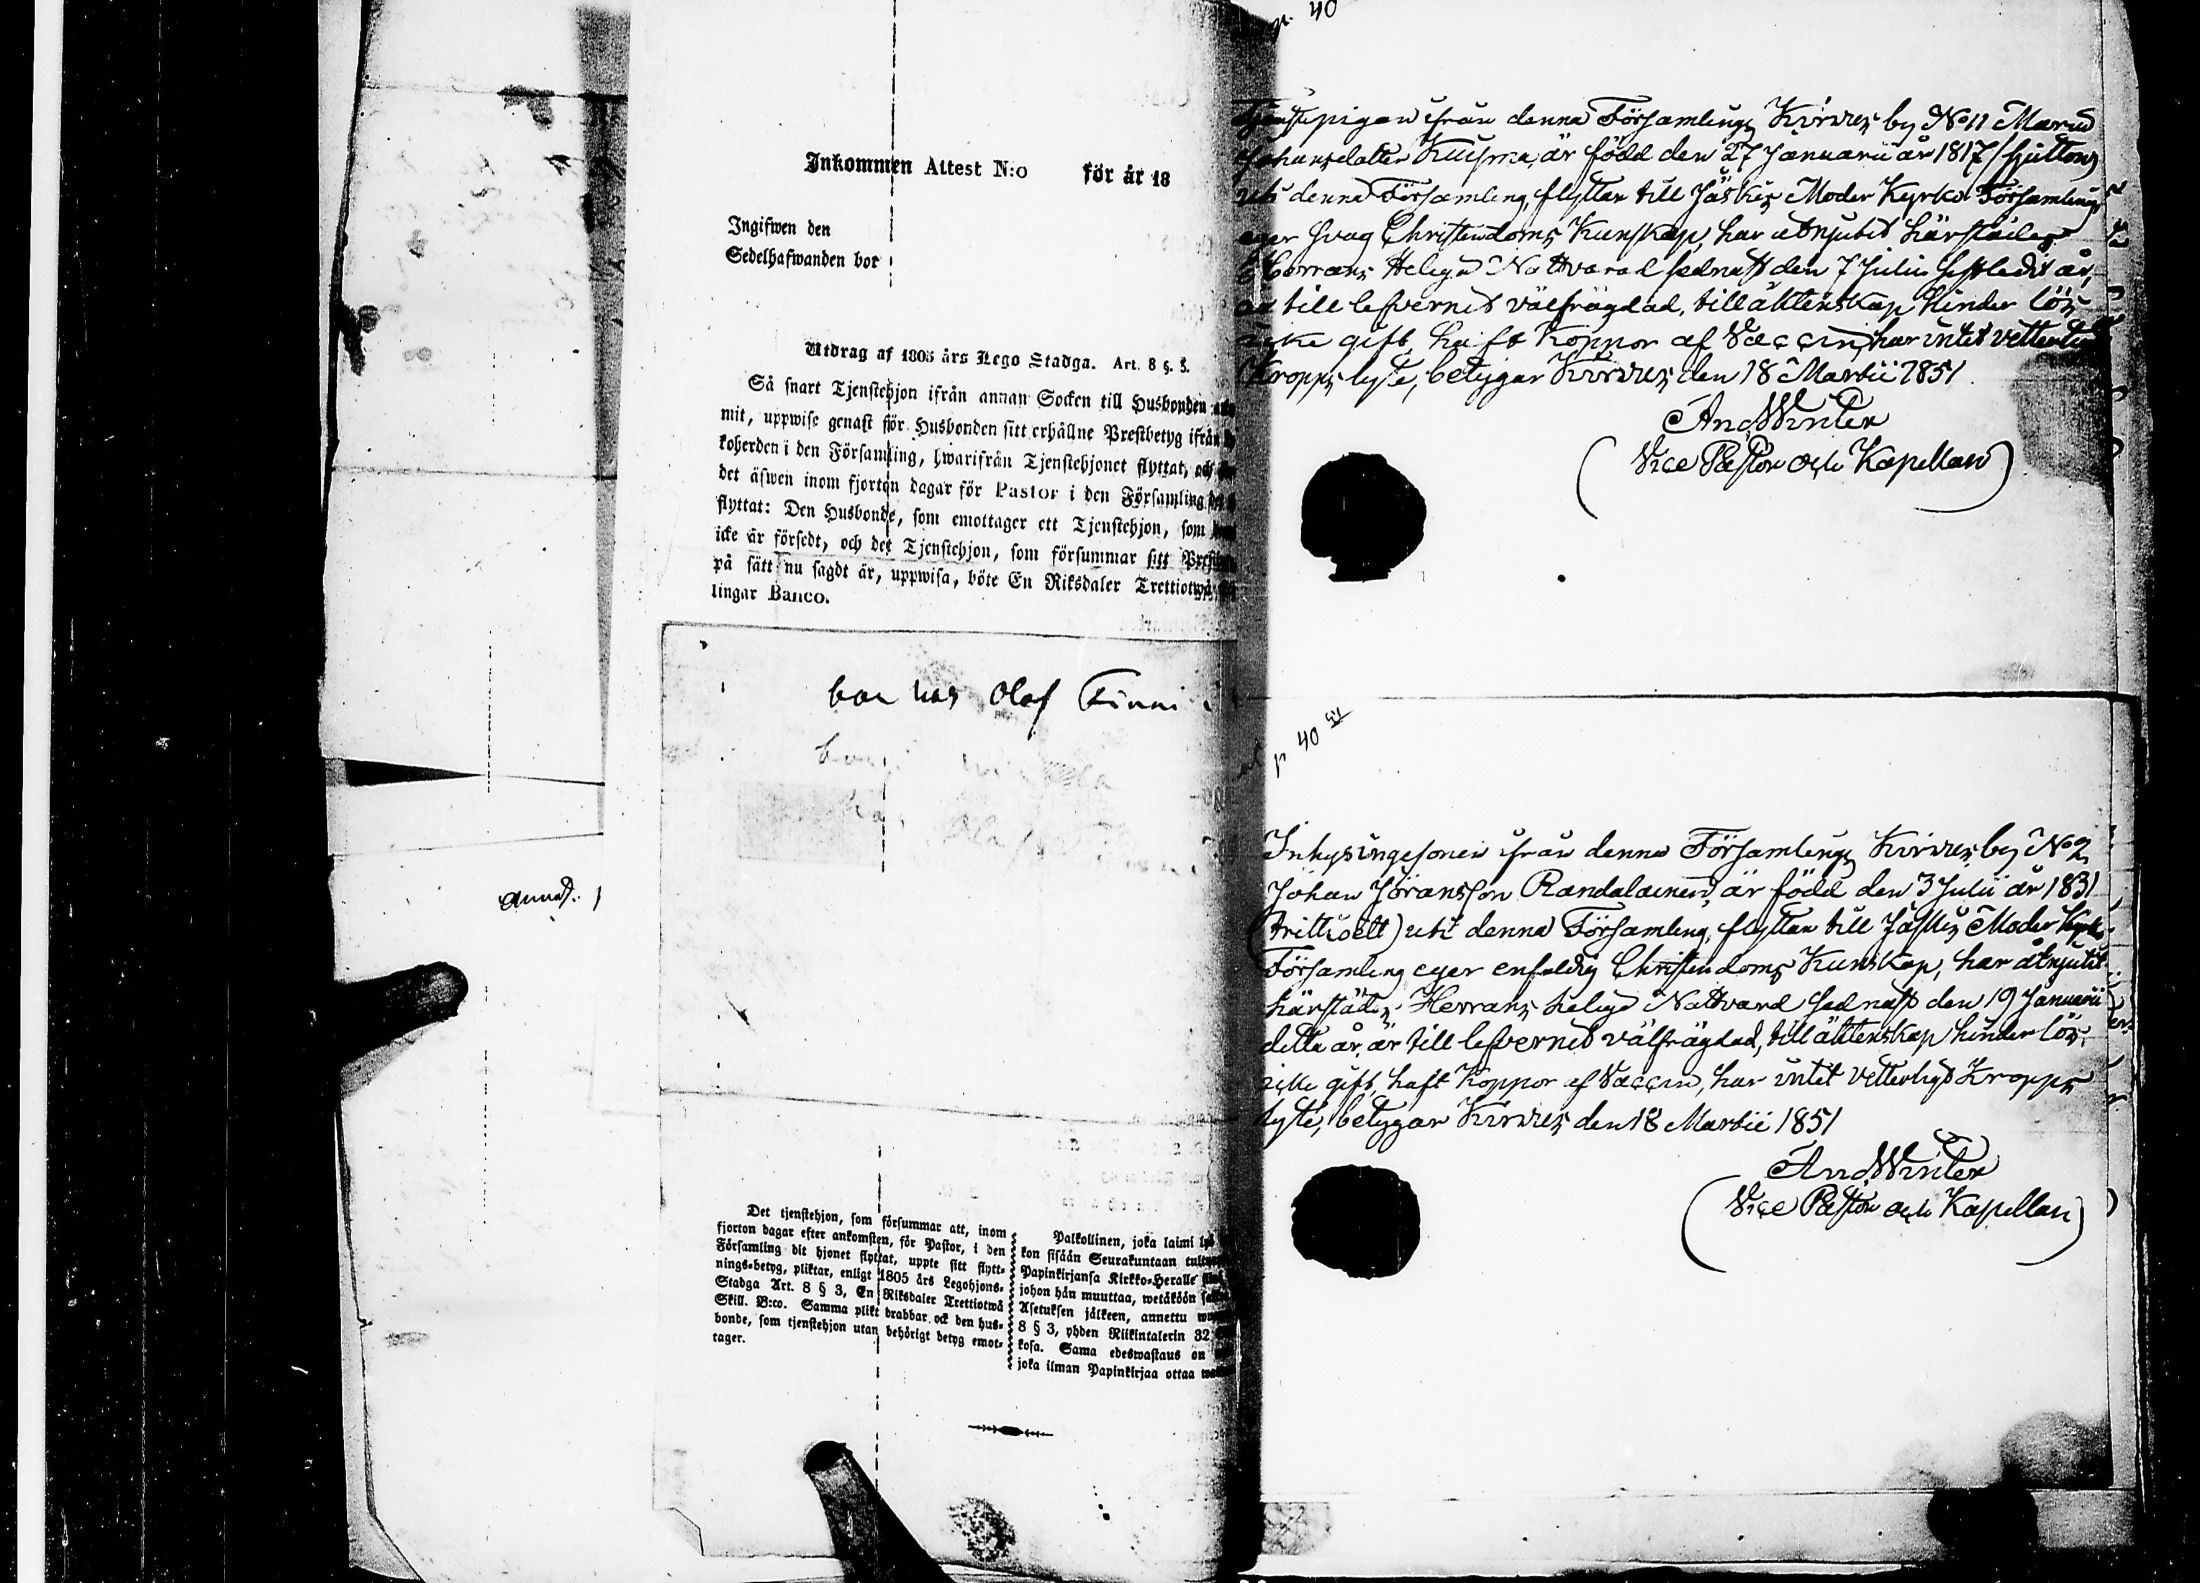 Inkommen Attest N:o för år 18
Ingifwen den
Sedelhafwanden bor
Utdrag af 1805 års Lego Stadga. Art. 8 §. 3.
Så snart Tjenstehjon ifrån annan Socken till Husbonden
mit, uppwise genast för Husbonden sitt erhållne Prestbetyg ifrån
koherden i den Församling, hwarifrån Tjenstehjonet flyttat, och
det äfwen inom fjorton dagar för Pastor i den Församling
flyttat: Den Husbonde, som emottager ett Tjenstehjon, som
icke är försedt, och det Tjenstehjon, som försummar sitt
på sätt nu sagdt är, uppwisa, böte En Riksdaler Trettiotwå
lingar Banco.
bor hos Olof Finni
Det tjenstehjon, som försummar att, inom
fjorton dagar efter ankomsten, för Pastor, i den
Församling dit hjonet flyttat, uppte sitt flytt-
nings-betyg, pliktar, enligt 1805 års Legohjons-
Stadga Art. 8 § 3, En Riksdaler Trettiotwå
Skill. B:co. Samma plikt drabbar ock den hus-
bonde, som tjenstehjon utan behörigt betyg emot-
tager.
Palkollinen, joka laimi
kon sisään Seurakuntaan
Papinkirjansa Kirkko-Heralle
johon hän muuttaa, wetäköön
Asetuksen jälkeen, annettu
8 § 3, yhden Riikintalerin 32
kosa. Sama edeswastaus on
joka ilman Papinkirjaa ottaa
p. 40
Tjenstepigan ifrån denna Församlings Kirvus by No 11 Maria
Johansdotter Kuisma, är född den 27 Januarii år 1817 (sjutton)
uti denna Församling, flyttar till Jäskis Moder Kyrko Församling,
eger svag Christendoms Kunskap, har åtnjutit härstädes
Herrans Heliga Nattvard sednast den 7 Julii sistledit år,
är till lefvernet välfrägdad, till äktenskap hinder lös
icke gift, haft Koppor af Vaccin, har intet vetterligt
Kropps lyte, betygar Kirvus den 18 Martii 1851.
And Winter
(Vice Pastor och Kapellan)
p 40
Inhysingesonen ifrån denna Församlings Kirvus by No 2
Johan Jöransson Randalainen, är född den 3 Julii år 1831
(trittioett) uti denna Församling, flyttar till Jäskis Moder Kyrko
Församling eger enfaldig Christendoms Kunskap, har åtnjutit
härstädes Herrans heliga Nattvard sednast den 19 Januarii
detta år, är till lefvernet välfrägdad, till äktenskap hinder lös,
icke gift, haft Koppor af Vaccin, har intet vetterligt Kropps
lyte, betygar Kirvus den 18 Martii 1851
And Winter
(Vice Pastor och Kapellan)